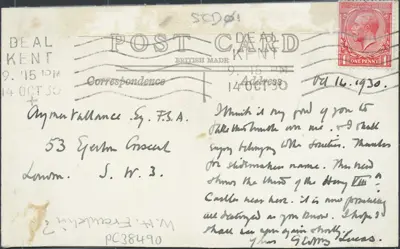 SCD01
DEAL
KENT
9.15 PM
14 OCT 30
POST CARD
BRITISH MADE
Correspondence
Address
KENT
9.15 PM
14 OCT 30
ONE PENNY
Oct 14. 1930.
Aymer Vallance. Esq. F.S.A.
53 Egerton Crescent
London. S. W. 3.
I think it very good of you to
take this trouble over me. I shall
enjoy belonging to the Societies. Thanks
for slidemakers name. This view
shows the third of the Henry VIII
Castles near here. it is now
all destroyed as you know. I hope I
shall see you again shortly.
Yours
PC38490